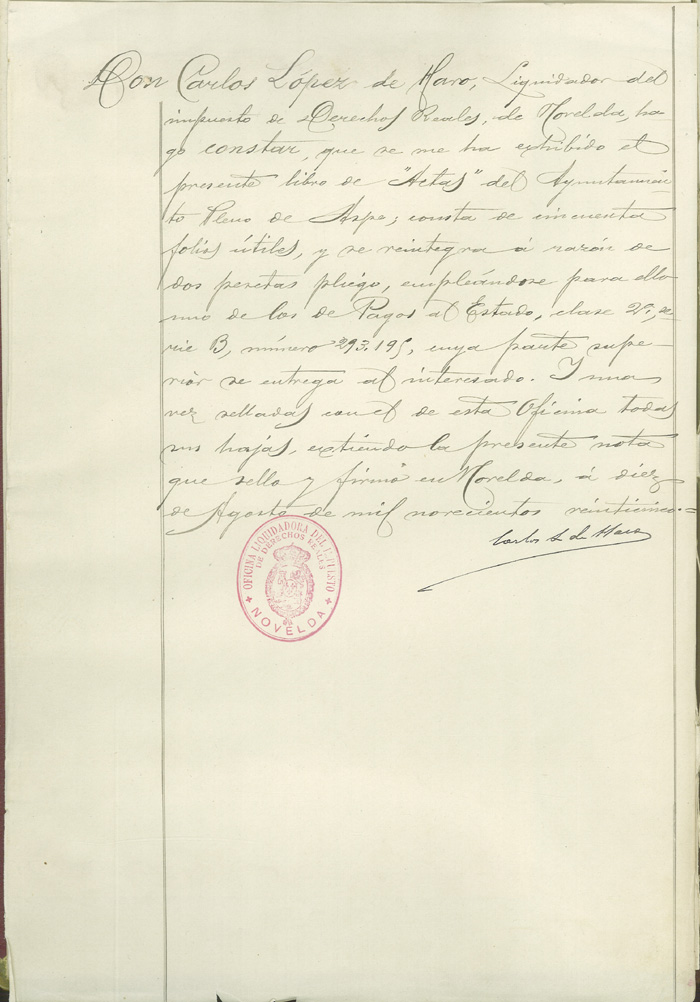 Don Carlos López de Haro, Liquidador del
impuesto de Derechos Reales, de Novelda, ha-
go constar, que se me ha exhibido el
presente libro de "Actas" del Ayuntamien-
to Pleno de Aspe; consta de cincuenta
folios útiles, y se reintegra á razón de
dos pesetas pliego, empleándose para ello
uno de los de Pagos al Estado, clase 2ª, se-
rie B, número 293.195, cuya parte supe-
rior se entrega al interesado. Y una
vez selladas con el de esta Oficina todas
sus hojas, extiendo la presente nota
que sello y firmo en Novelda, á diez
de Agosto de mil novecientos veinticinco.=
Carlos L de Haro
OFICINA LIQUIDADORA DEL IMPUESTO
DE DERECHOS REALES
NOVELDA